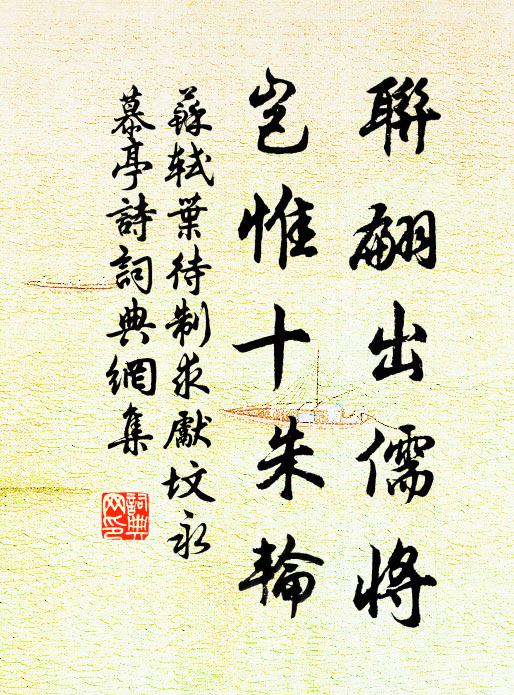 聯翩出儒將
豈惟十朱輪
蘇軾葉待制求獻坟永
慕亭詩詞典網集
詞典网印